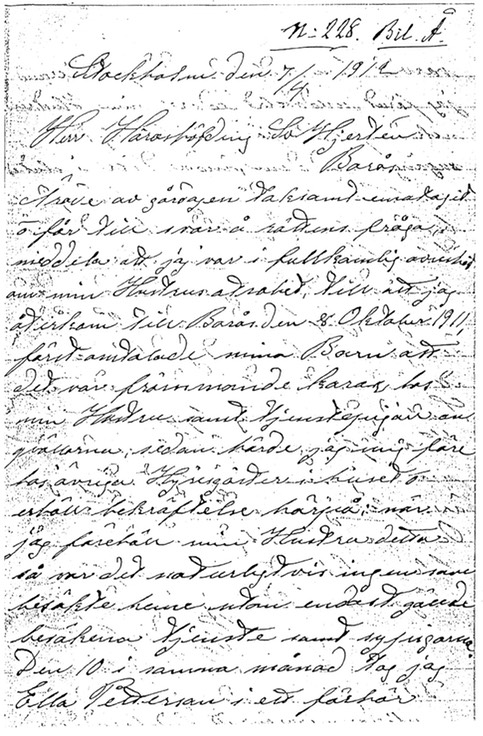 N: 228. Bil. A.
Stockholm den 7/1 1912
Herr Häradshöfding Sv Hjertén
Borås
Ärade av gårdagen taksamt emottagit
o får till svar å rättens fråga
meddela att jag var i fullkomlig ovisshet
om min Hustrus otrohet, till att jag
återkom till Borås den 8 Oktober 1911,
först omtalade mina Barn att
det var främmande karar hos
min Hustru samt tjenstepigan om
qvälarna, sedan hörde jag mig före
hos övriga Hyresgäster i huset o
erhöll bekräftelse härpå; när
jag förehöll min Hustru detta
så var det naturligtvis ingen som
besökte henne utom endast gällde
besöken tjenste samt sypigorna.
Den 10 i samma månad tog jag
Ella Pettersson i ett förhör